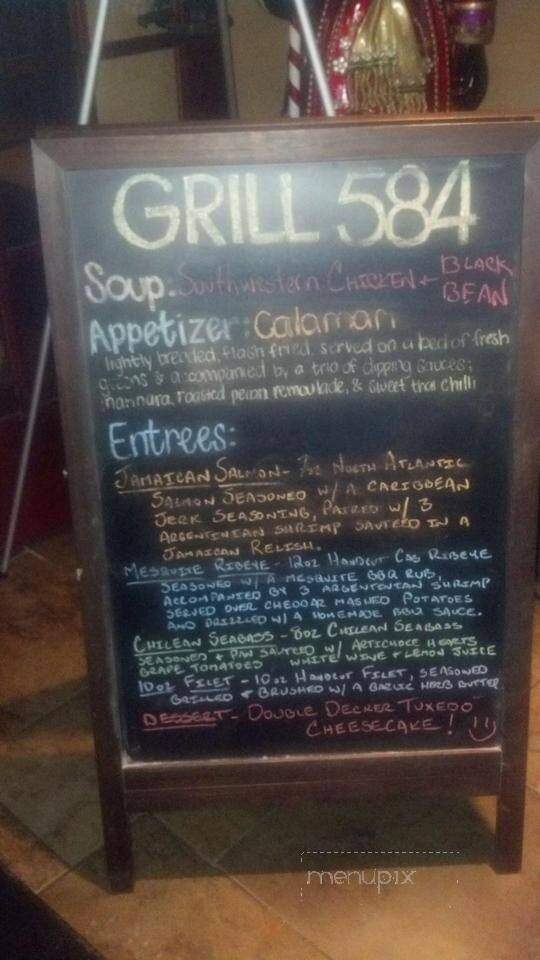 GRILL 584
Soup: Southwestern Chicken + BLACK BEAN
Appetizer: Calamari
lightly breaded, flash fried. served on a bed of fresh
greens & accompanied by a trio of dipping sauces;
marinara, roasted pecan remoulade, & sweet thai chilli
Entrees:
JAMAICAN SALMON - 7oz NORTH ATLANTIC
SALMON SEASONED W/ A CARIBBEAN
JERK SEASONING, PAIRED W/ 3
ARGENTINIAN SHRIMP SAUTEED IN A
JAMAICAN RELISH.
MESQUITE RIBEYE - 12oz HANDCUT CAB RIBEYE
SEASONED W/ A MESQUITE BBQ RUB,
ACCOMPANIED BY 3 ARGENTENIAN SHRIMP
SERVED OVER CHEDDAR MASHED POTATOES
AND DRIZZLED W/ A HOMEMADE BBQ SAUCE.
CHILEAN SEABASS - 8oz CHILEAN SEABASS
SEASONED + PAN SAUTEED W/ ARTICHOCE HEARTS
GRAPE TOMATOES WHITE WINE + LEMON JUICE
10oz FILET - 10oz HANDCUT FILET, SEASONED
GRILLED + BRUSHED W/ A GARLIC HERB BUTTER
DESSERT - DOUBLE DECKER TUXEDO
CHEESECAKE!
menupix